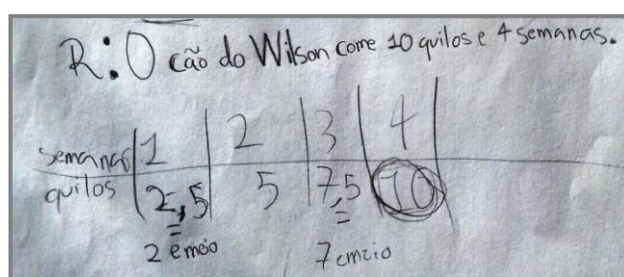 R: O cão do Wilson come 10 quilos e 4 semanas.
semanas 1 2 3 4
quilos 2,5 5 7,5 10
2 e meio 7 e meio